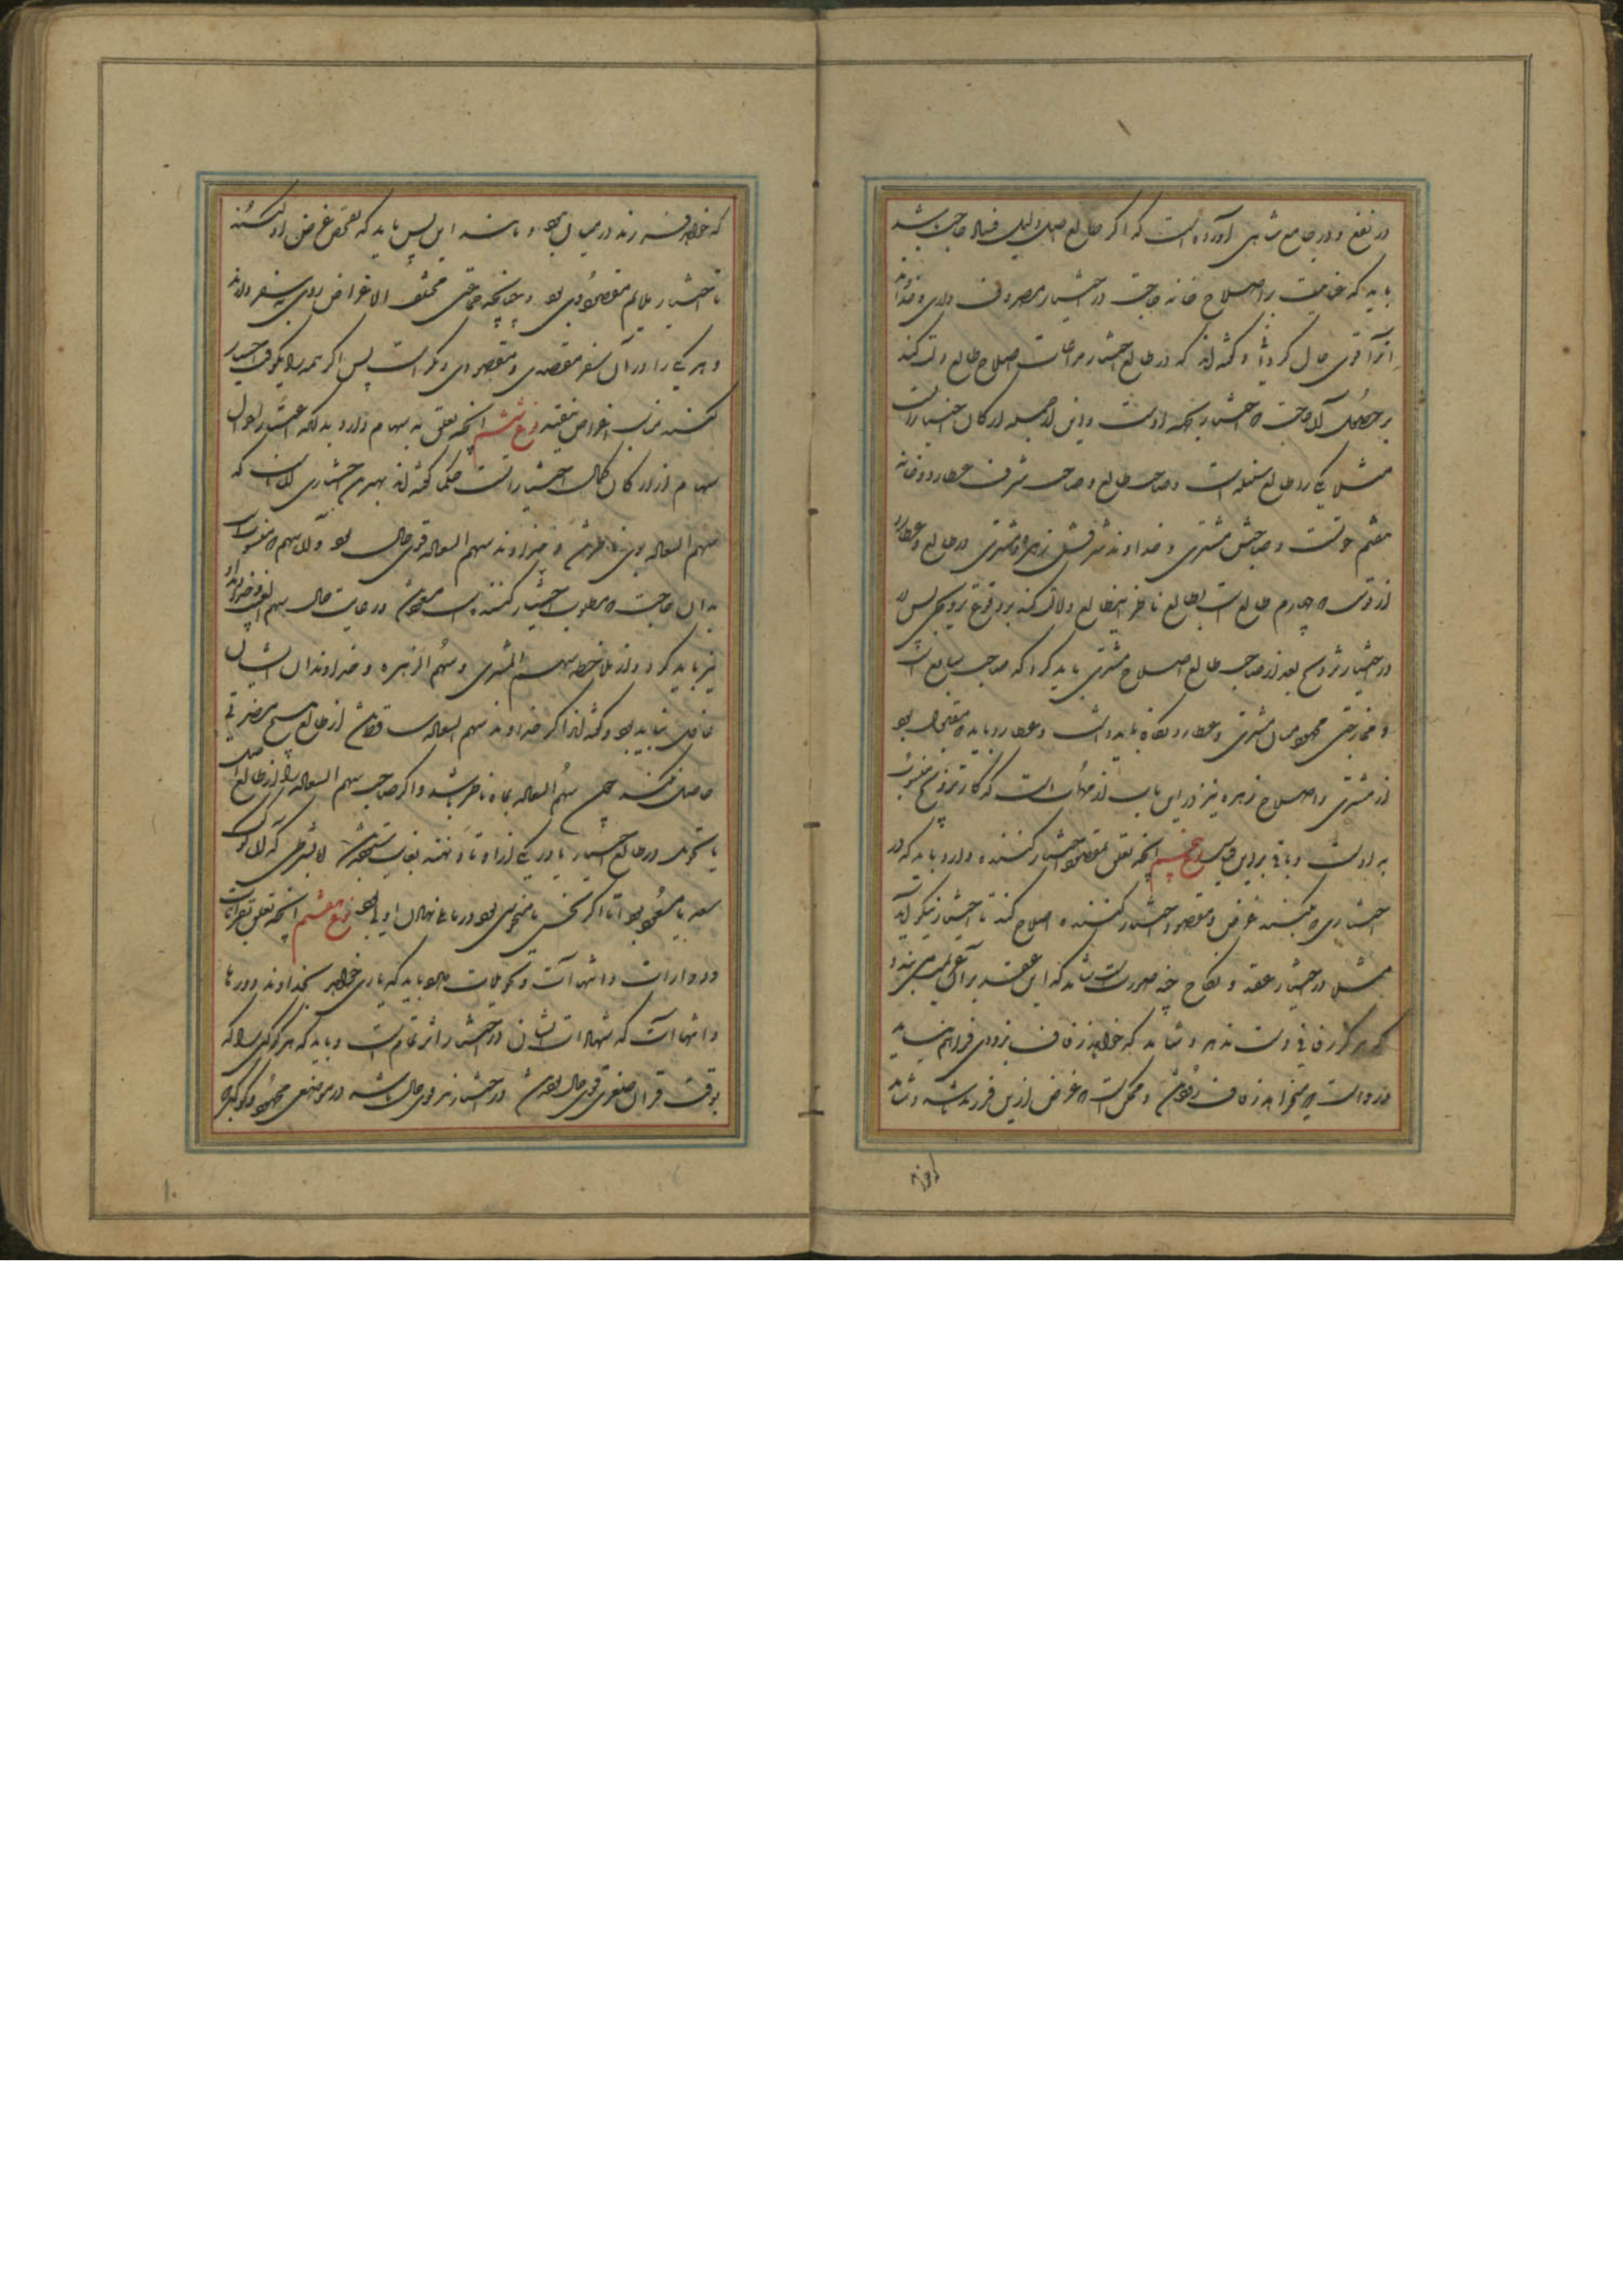 در نفع و در جامع شاهی آورده است که اگر طالع اصل دلیل فساد حاجت باشد
باید که عنایت بر اصلاح خانه حاجت در اختیار مصروف دارند و خداوند
آنرا قوی حال گردانند و گفته‌اند که در طالع اختیار مراعات اصلاح طالع دلالت کند
بر حصول آن حاجت که اختیار بجهة اوست و این از جمله ارکان اختیاراتست
مثلا یکی را طالع سنبله است و صاحب طالع و صاحب شرف عطارد و خانه
هفتم حوتست و صاحبش مشتری و خداوند شرفش زهره و مشتری در طالع و عطارد
از قوس که چهارم طالع است بطالع ناظر این طالع دلالت کند بر وقوع تزویج پس
در اختیار تزویج بعد از صاحب طالع اصلاح مشتری باید کرد که صاحب سابع است
و ممازجتی محمود میان مشتری و عطارد نگاه باید داشت و عطارد باید که مقبول بود
از مشتری و اصلاح زهره نیز در این باب از مهمات است که کار تزویج منسوب
به اوست و باقی برین قیاس نوع پنجم آنچه تعلق بمقصود اختیار کننده دارد باید که در
اختیاری که میکنند غرض و مقصود اختیار کننده اصلاح کنند تا اختیار نیکو آید
مثلا در اختیار عقد و نکاح چند صورت است شاید که این عقد برای
که هرگز زفافی دست ندهد و شاید که خواهد زفاف بزودی فراهم نیاید
و رواست که میخواهد زفاف زود و ممکن است که غرض ازین فرزند باشد و شاید
که خواهد فرزند در میان بود و باشد این پس باید که بتحقق غرض او کنند
تا اختیار ملایم مقصود وی بود و چنانچه جماعتی مختلف الاغراض روی بسفر دارند
و هر یکی را در آن سفر مقصدی و مقصودی دیگر است پس اگر همه را بیکوقت اختیار
کنند مناسب اغراض نیفتد نوع ششم آنچه تعلق به سهام دارد بدانکه اعتبار احوال
سهام از ارکان کمال اختیاراتست حکما گفته‌اند بهترین اختیاری آنست که
سهم السعاده بوی ناظر باشد و خداوند سهم السعاده قوی حال بود و آن سهم که منسوبست
بدان حاجت که مطلوب اختیار کننده است مسعود باشد و رعایت حال سهم الغیب و خداوند او
نیز باید کرد و از ملاحظه سهم المشتری و سهم الزهره و خداوندان ایشان
غافل نباید بود و گفته‌اند اگر خداوند سهم السعاده ساقط باشد از طالع هیچ مضرتی
حاصل نکند چون سهم السعاده بماه ناظر باشد و اگر صاحب سهم السعاده را از طالع اصل
یا تحویل در طالع اختیار یا در یکی از اوتاد نهند بغایت پسندیده باشد اما بشرطی که آن کوکب
سعد یا مسعود بود اما اگر نحس یا منحوس بود در مائل نهادن اولی بود نوع هفتم آنچه تعلق بقرانات
و ادوارات و انتهاآت و تحویلات دارد باید که یاری خواهد بخداوند دورها
و انتهاآت که شهادات ایشان در اختیار اثر تمام است و باید که هر کوکبی را که
بوقت قران صغیر قوی حال بوده باشد در اختیار نیز قوی حال باشد در موضعی محمود و کوکبی که
اواز
۱۰